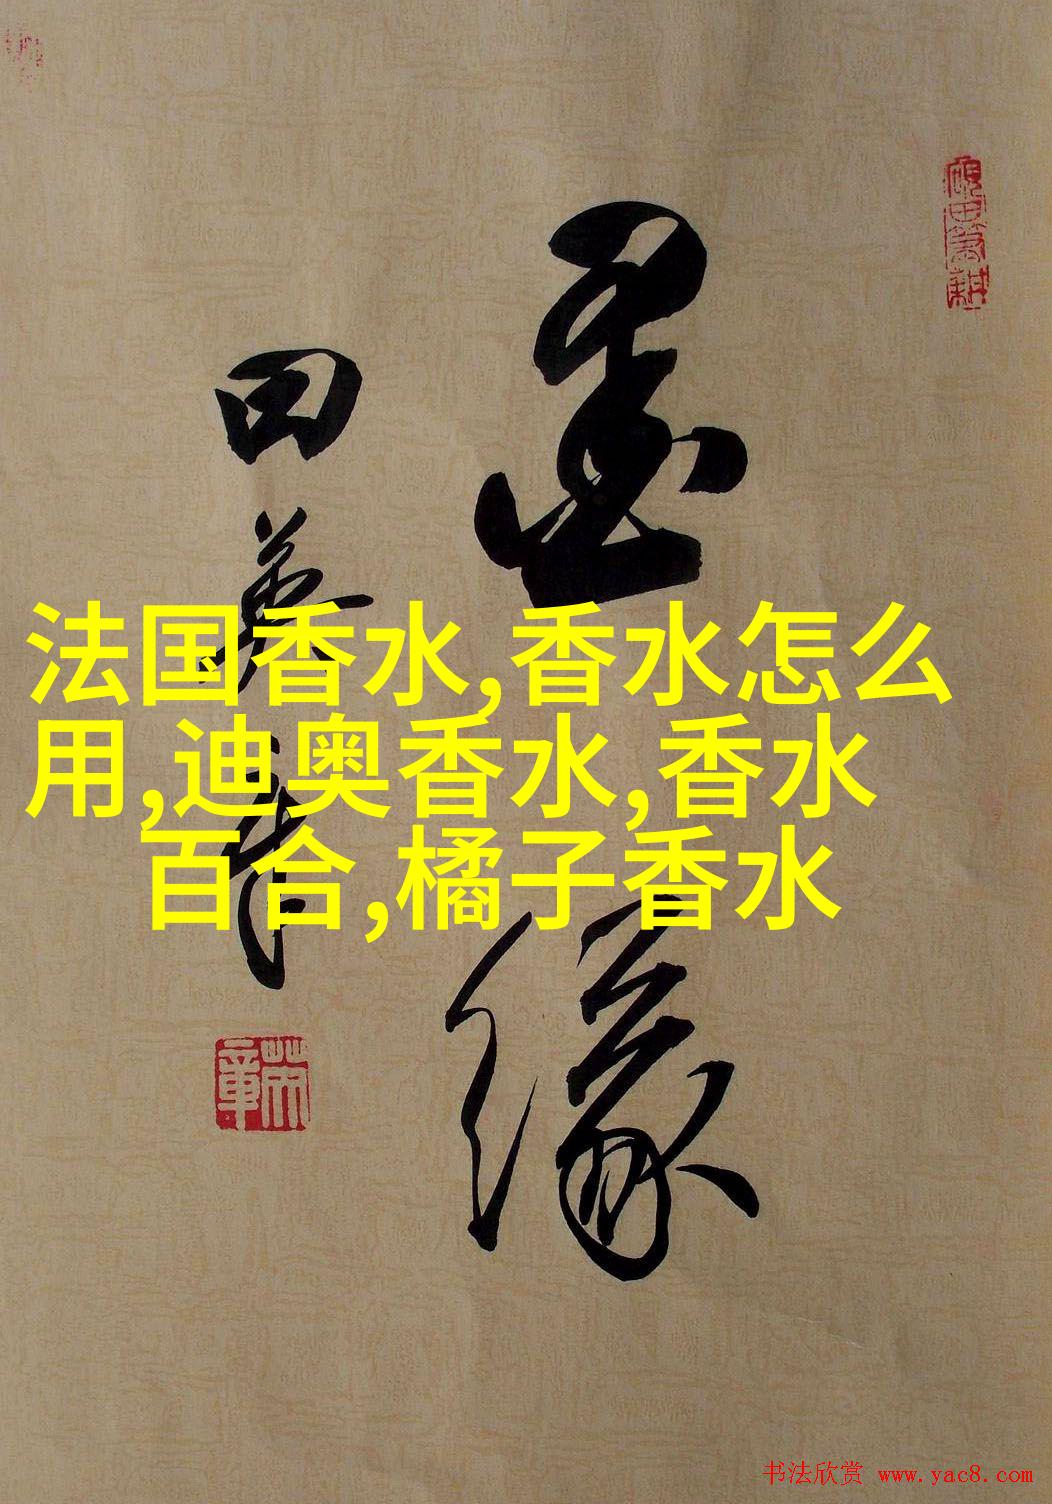 墨缘
田英章
法国香水,香水怎么
用,迪奥香水,香水
百合,橘子香水
书法欣赏 www.yac8.com